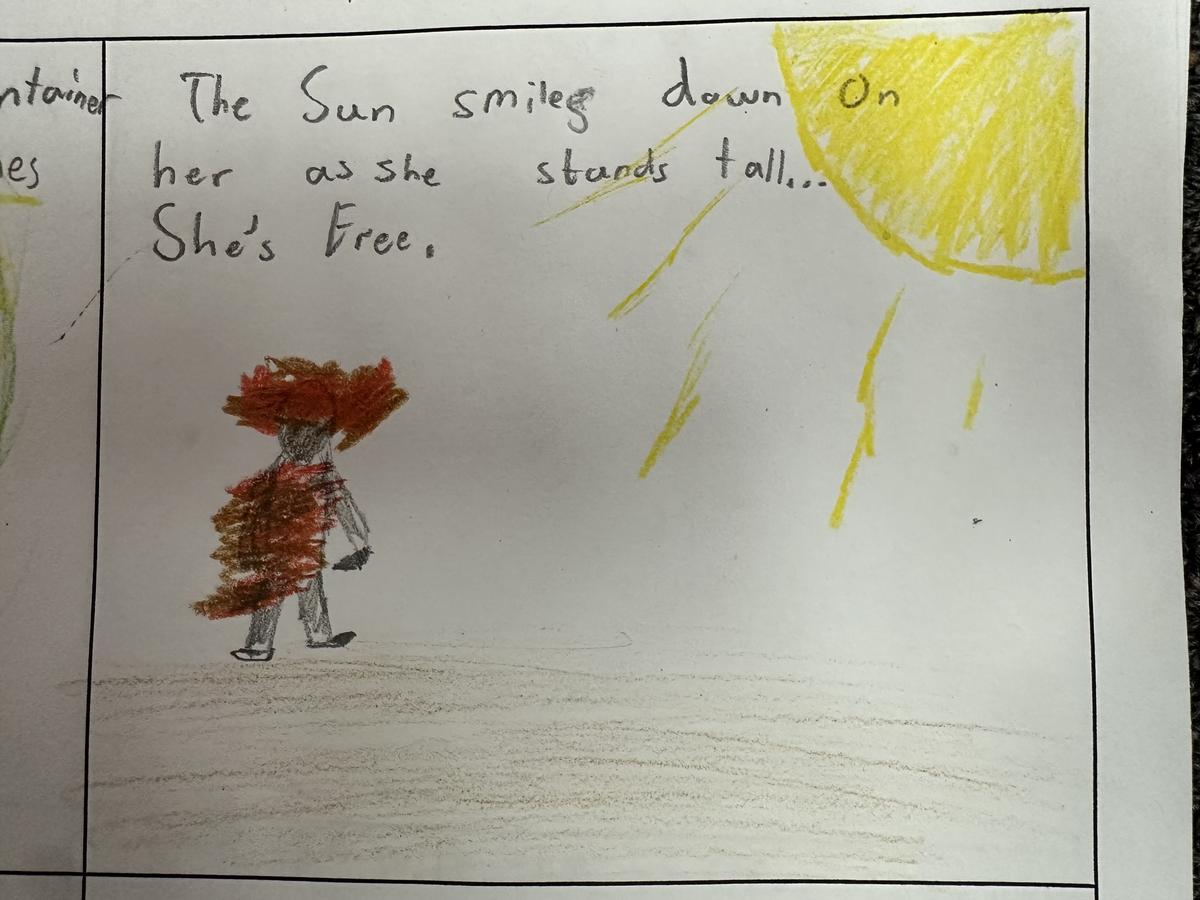 The Sun smiles down On
her as she stands tall...
She's Free.
ntainer
es